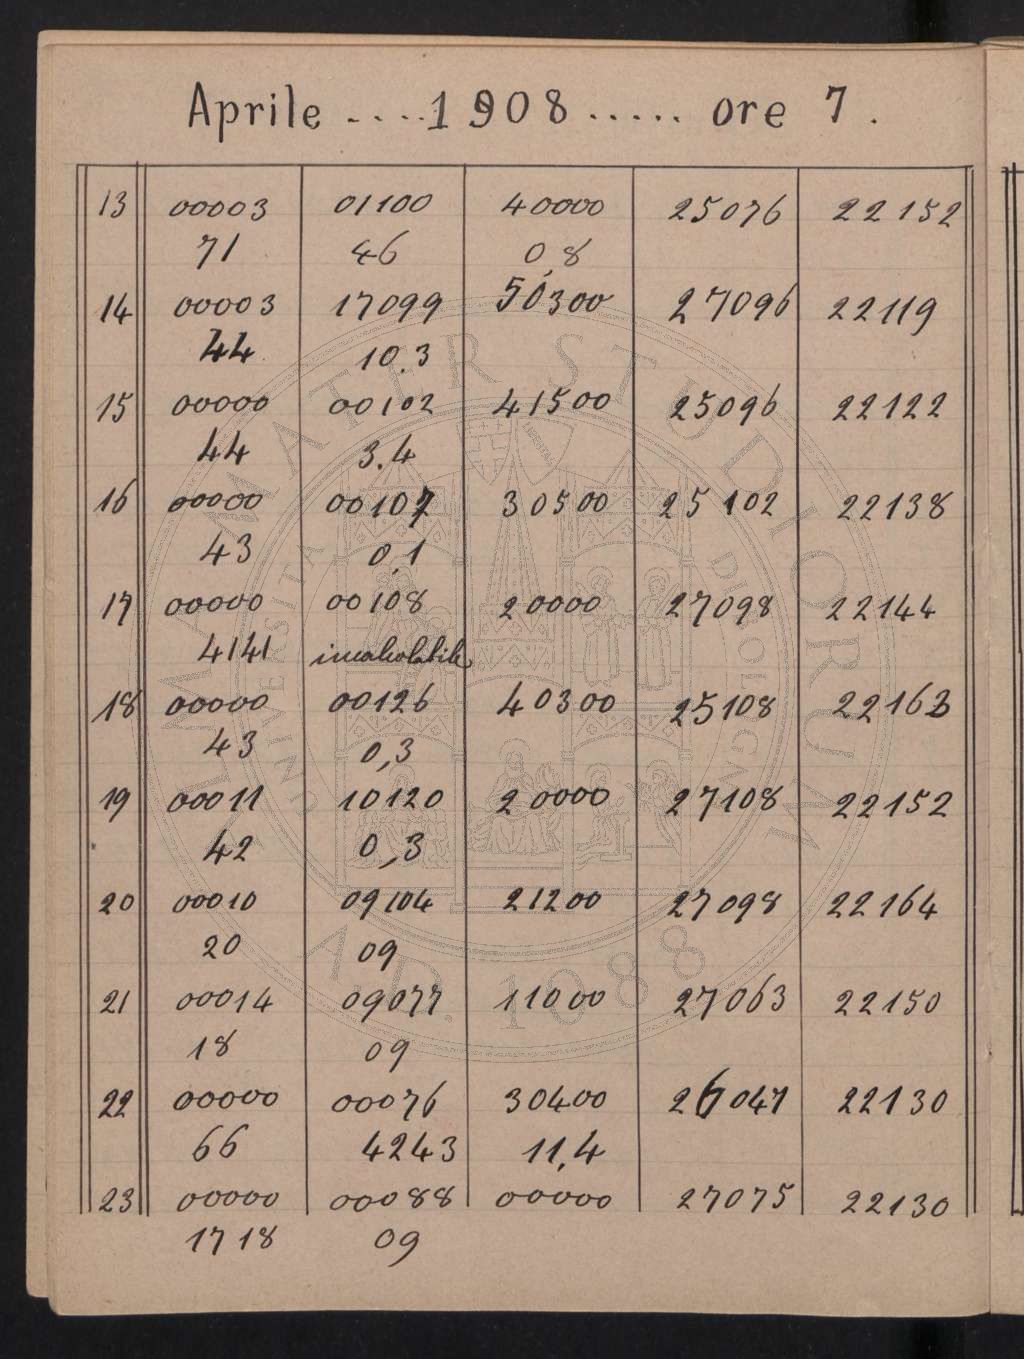 Aprile ....1908 ..... ore 7.
13 00003 01100 40000 25076 22152
71 46 0,8
14 00003 17099 50300 27096 22119
44 10.3
15 00000 00102 41500 25096 22122
44 3.4
16 00000 00107 30500 25102 22138
43 0,1
17 00000 00108 20000 27098 22144
4141 incalcolabile
18 00000 00126 40300 25108 22163
43 0,3
19 00011 10120 20000 27108 22152
42 0,3
20 00010 09104 21200 27098 22164
20 09
21 00014 09077 11000 27063 22150
18 09
22 00000 00076 30400 26047 22130
66 4243 11,4
23 00000 00088 00000 27075 22130
1718 09
ALMA MATER STUDIORUM
UNIVERSITÀ DI BOLOGNA
A.D. 1088